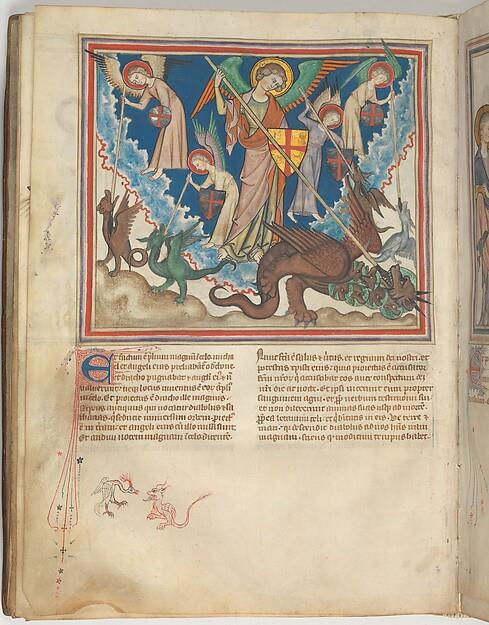 Et factum est p̄lium magnū ī celo. micha
el et angeli eius preliabāt᷑ cū dracone
et dracho pugnabat et angeli eius et nō
ualuerunt neqꝫ locus inuentus ē eoꝝ ampliꝰ
in celo. Et proiectus ē dracho ille magnus.
serpens antiquus qui uocatur diabolus et sa
thanas. qui seducit uniuersum orbem. proiec
tus ē in terram et angeli eius cū illo missi sunt.
Et audiui uocem magnam ī celo dicentē.
Nunc facta ē salus et uirtus. et regnum dei nostri. et
potestas xp̄i eius. quia proiectus ē accusator
frm̄ nr̄oꝝ qui accusabat eos ante conspectum dei
nr̄i die ac nocte. Et ipsi uicerunt eum propter
sanguinem agni. et ꝓpter uerbum testimonii sui
et non dilexerunt animas suas usqꝫ ad mortē.
celi et qui habitatis in eis. Ve terre et
mari. qꝛ descendit diabolus ad uos habens irā
magnam. sciens qđ modicum tempus habet.